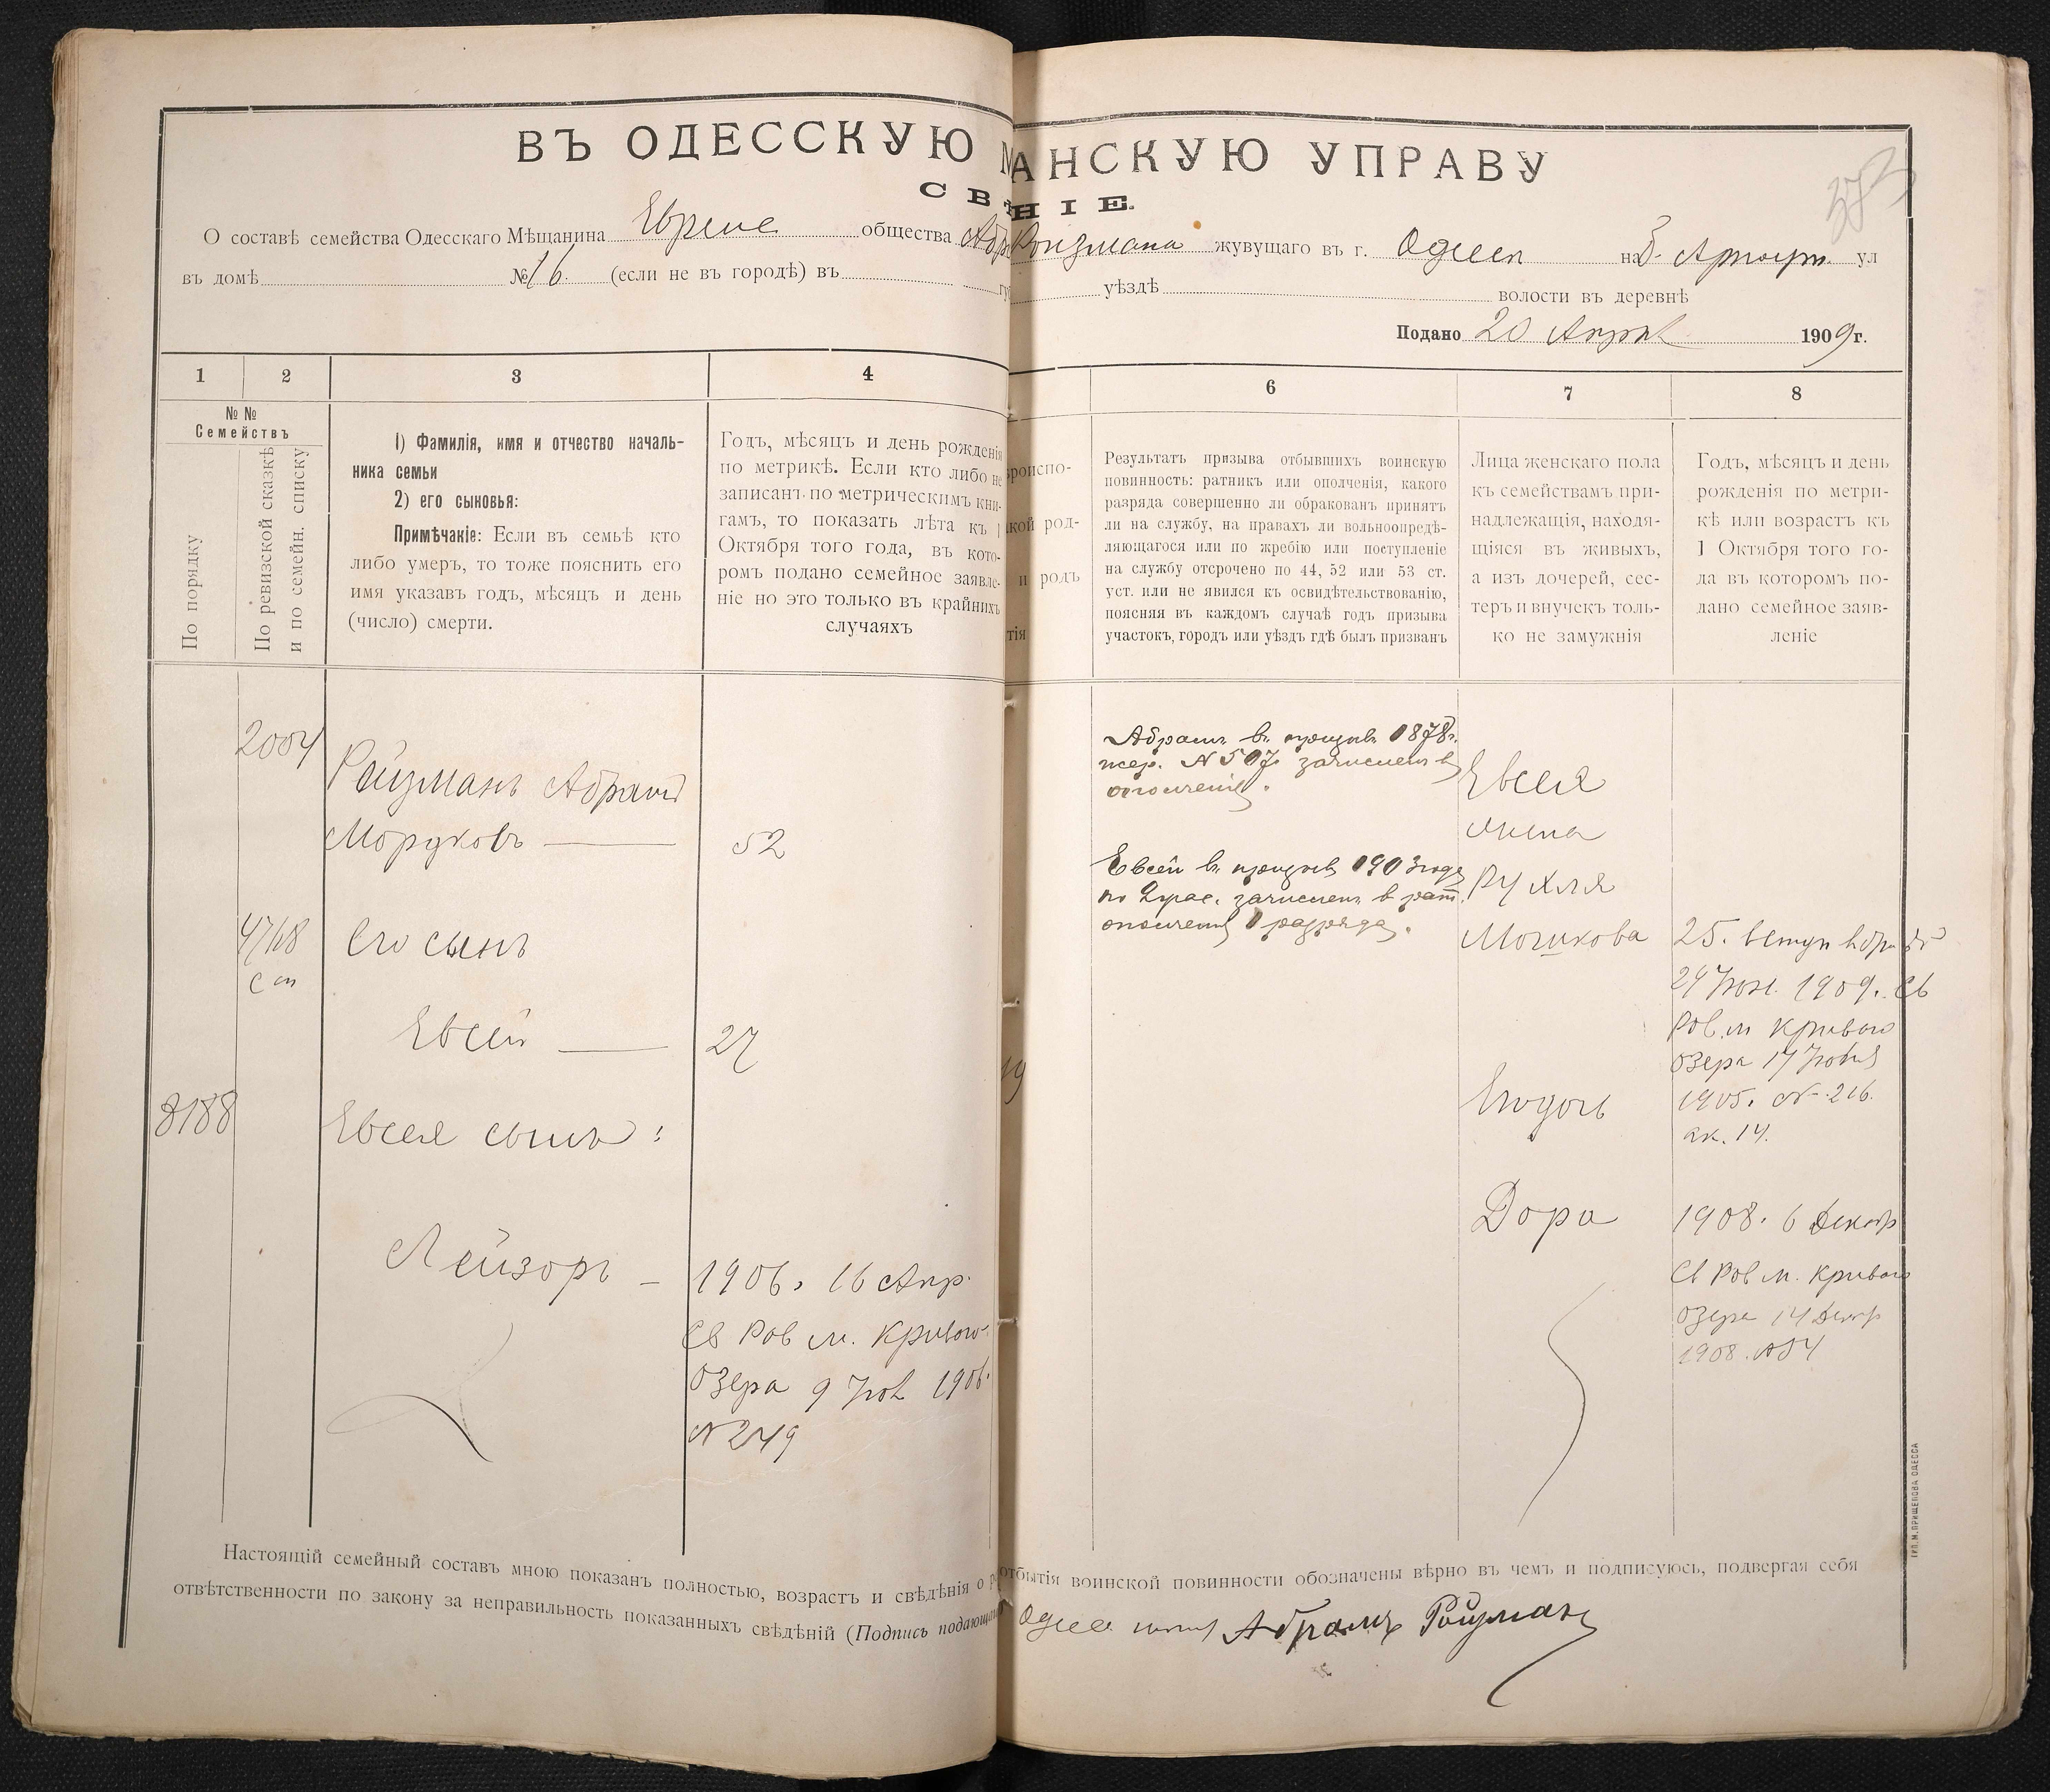 ВЪ ОДЕССКУЮ М АНСКУЮ УПРАВУ
СВѢ НІЕ.
О составѣ семейства Одесскаго Мѣщанина Еврейс общества Абр Ройзмана жувущаго въ г. Одесса на Б. Арнаут. ул
въ домѣ № 16. (если не въ городѣ) въ уѣздѣ волости въ деревнѣ
Подано 20 Апрѣл 1909 г.
1 2 3 4 6 7 8
№ № Семействъ
По порядку
По ревизской сказкѣ
и по семейн. списку
1) Фамилія, имя и отчество началь-
ника семьи
2) его сыновья:
Примѣчаніе: Если въ семьѣ кто
либо умеръ, то тоже пояснить его
имя указавъ годъ, мѣсяцъ и день
(число) смерти.
Годъ, мѣсяцъ и день рожденія
по метрикѣ. Если кто либо не
записанъ по метрическимъ кни-
гамъ, то показать лѣта къ 1
Октября того года, въ кото-
ромъ подано семейное заявле-
ніе но это только въ крайнихъ
случаяхъ
ѣроиспо-
акой род-
и родъ
тія
Результатъ призыва отбывшихъ воинскую
повинность: ратникъ или ополченія, какого
разряда совершенно ли обракованъ принятъ
ли на службу, на правахъ ли вольноопредѣ-
ляющагося или по жребію или поступленіе
на службу отсрочено по 44, 52 или 53 ст.
уст. или не явился къ освидѣтельствованію,
поясняя въ каждомъ случаѣ годъ призыва
участокъ, городъ или уѣздъ гдѣ былъ призванъ
Лица женскаго пола
къ семействамъ при-
надлежащія, находя-
щіяся въ живыхъ,
а изъ дочерей, сес-
теръ и внучекъ толь-
ко не замужнія
Годъ, мѣсяцъ и день
рожденія по метри-
кѣ или возрастъ къ
1 Октября того го-
да въ котором­ъ по-
дано семейное заяв-
леніе
2004
Ройзманъ Абрамъ
Мордковъ — 52
4768
Сп
Его сынъ
Евсей — 27
8188
Евсея сынъ:
Лейзоръ — 1906. 16 Апр.
Св Рав м. Кривого
Озера 9 Ноя 1906.
№ 249
19
Абрамъ въ призывъ 1878 г.
жер. № 507 зачисленъ в
ополченіе.
Евсей въ призывъ 1903 года
зачисленъ в рат.
ополченія 1 разряда.
Евсея
жена
Рухля
Мошкова
25. вступ в бракъ
24 1909. Св
Рав. м Кривого
Озера 17
1905. № 216.
ак. 14.
Дора
1908. 6 Декабр
Св Рав м. Кривого
Озера 14 Декбр
1908. № 54
Настоящій семейный составъ мною показанъ полностью, возрастъ и свѣдѣнія о р отбытія воинской повинности обозначены вѣрно въ чемъ и подписуюсь, подвергая себя
отвѣтственности по закону за неправильность показанныхъ свѣдѣній (Подпись подающаго Одесс Абрамъ Ройзманъ
ТИП. М. ПРИЩЕПОВА ОДЕССА